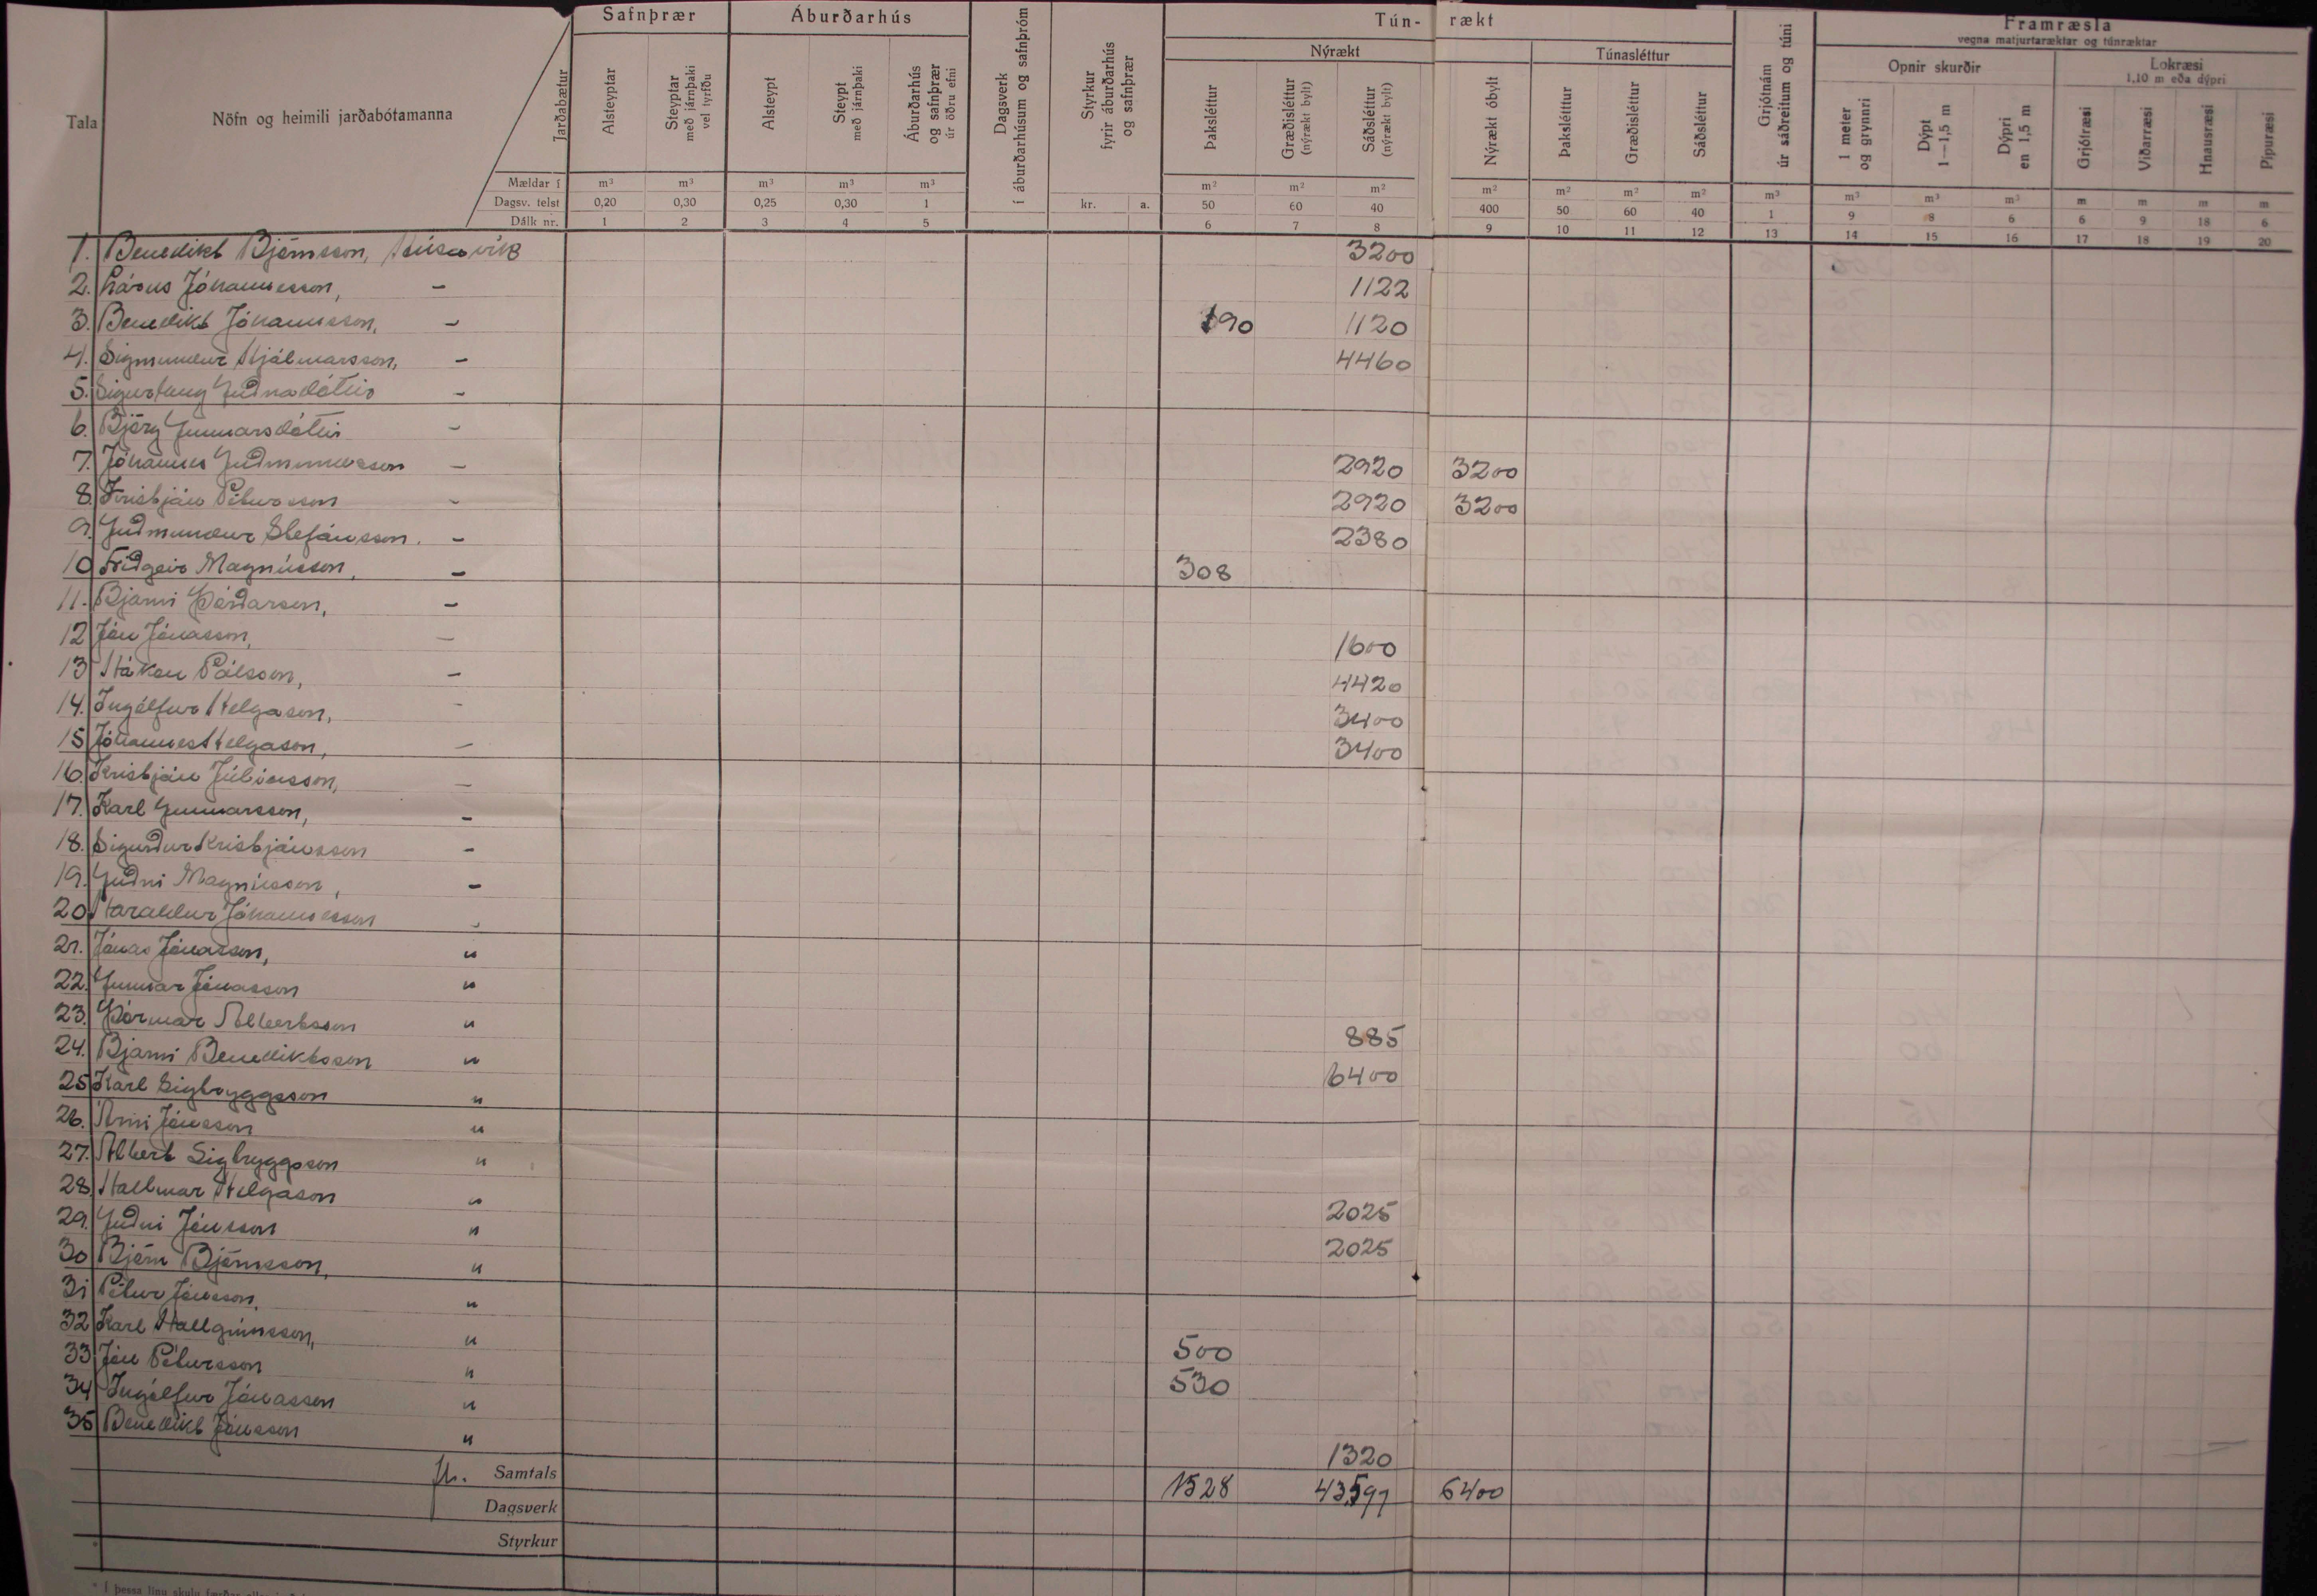 Safnþrær Áburðarhús Tún- rækt Framræsla
vegna matjurtaræktar og túnræktar
Nýrækt Túnasléttur Opnir skurðir Lokræsi
1,10 m eða dýpri
Tala Nöfn og heimili jarðabótamanna Jarðabætur
Alsteyptar
Steyptar með járnþaki vel tyrfðu
Alsteypt
Steypt með járnþaki
Áburðarhús og safnþrær úr öðru efni
Dagsverk í áburðarhúsum og safnþróm
Styrkur fyrir áburðarhús og safnþrær
Þaksléttur
Græðisléttur (nýrækt bylt)
Sáðsléttur (nýrækt bylt)
Nýrækt óbylt
Þakslétttur
Græðisléttur
Sáðsléttur
Grjótnám úr sáðreitum og túni
1 meter og grynnri
Dýpt 1—1,5 m
Dýpri en 1,5 m
Grjótræsi
Viðarræsi
Hnausræsi
Pípuræsi
Mældar í m³ m³ m³ m³ m³ m² m² m² m² m² m² m² m³ m³ m³ m³ m m m m
Dagsv. telst 0,20 0,30 0,25 0,30 1 kr. a. 50 60 40 400 50 60 40 1 9 8 6 6 9 18 6
Dálk nr. 1 2 3 4 5 6 7 8 9 10 11 12 13 14 15 16 17 18 19 20
1. Benedikt Björnsson, Húsavík 3200
2. Lárus Jóhannesson, - 1122
3. Benedikt Jóhannsson, - 190 1120
4. Sigmundur Hjálmarsson, - 4460
5. Sigurlaug Guðnadóttir -
6. Björg Gunnarsdóttir -
7. Jóhannes Guðmundsson - 2920 3200
8. Kristján Pétursson - 2920 3200
9. Guðmundur Stefánsson. - 2380
10 Friðgeir Magnússon, - 308
11. Bjarni Þórðarson, -
12 Jón Jónasson, - 1600
13 Hákon Pálsson, - 4420
14. Ingólfur Helgason, - 3400
15 Jóhannes Helgason, - 3400
16. Kristján Júlíusson, -
17. Karl Gunnarsson, -
18. Sigurður Kristjánsson -
19. Guðni Magnússon, -
20 Haraldur Jóhannesson -
21. Jónas Jónasson, "
22. Gunnar Jónasson "
23. Þórmar Albertsson " 885
24. Bjarni Benediktsson " 6400
25 Karl Sigtryggsson "
26. Árni Jónsson "
27. Albert Sigtryggsson "
28. Hallmar Helgason " 2025
29. Guðni Jónsson " 2025
30 Björn Björnsson, "
31 Pétur Jónsson, "
32 Karl Hallgrímsson, " 500
33 Jón Pétursson " 530
34 Ingólfur Jónasson "
35 Benedikt Jónsson " 1320
fl. Samtals 1528 43597 6400
Dagsverk
Styrkur